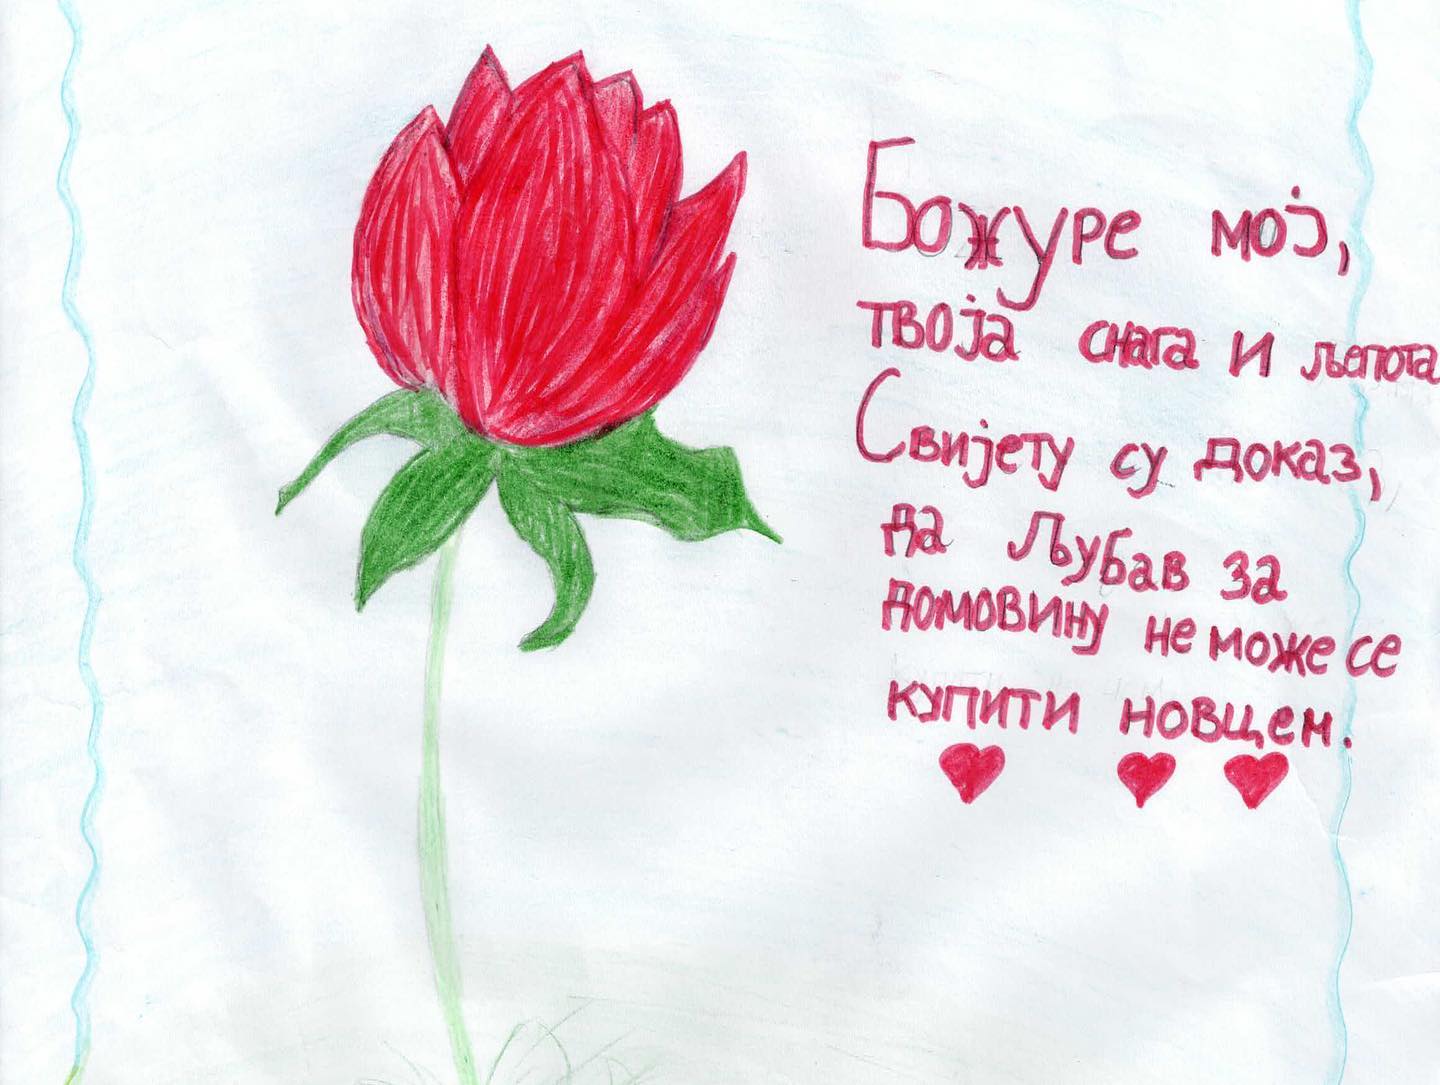 Божуре мој,
твоја снага и љепота
Свијету су доказ,
да Љубав за
домовину не може се
купити новцем.